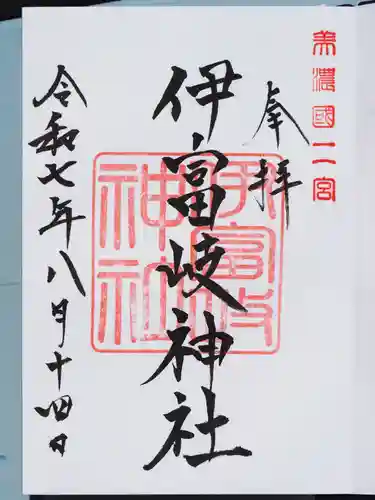 美濃國二宮
奉拝
伊富岐神社
伊富岐神社
令和七年八月十四日